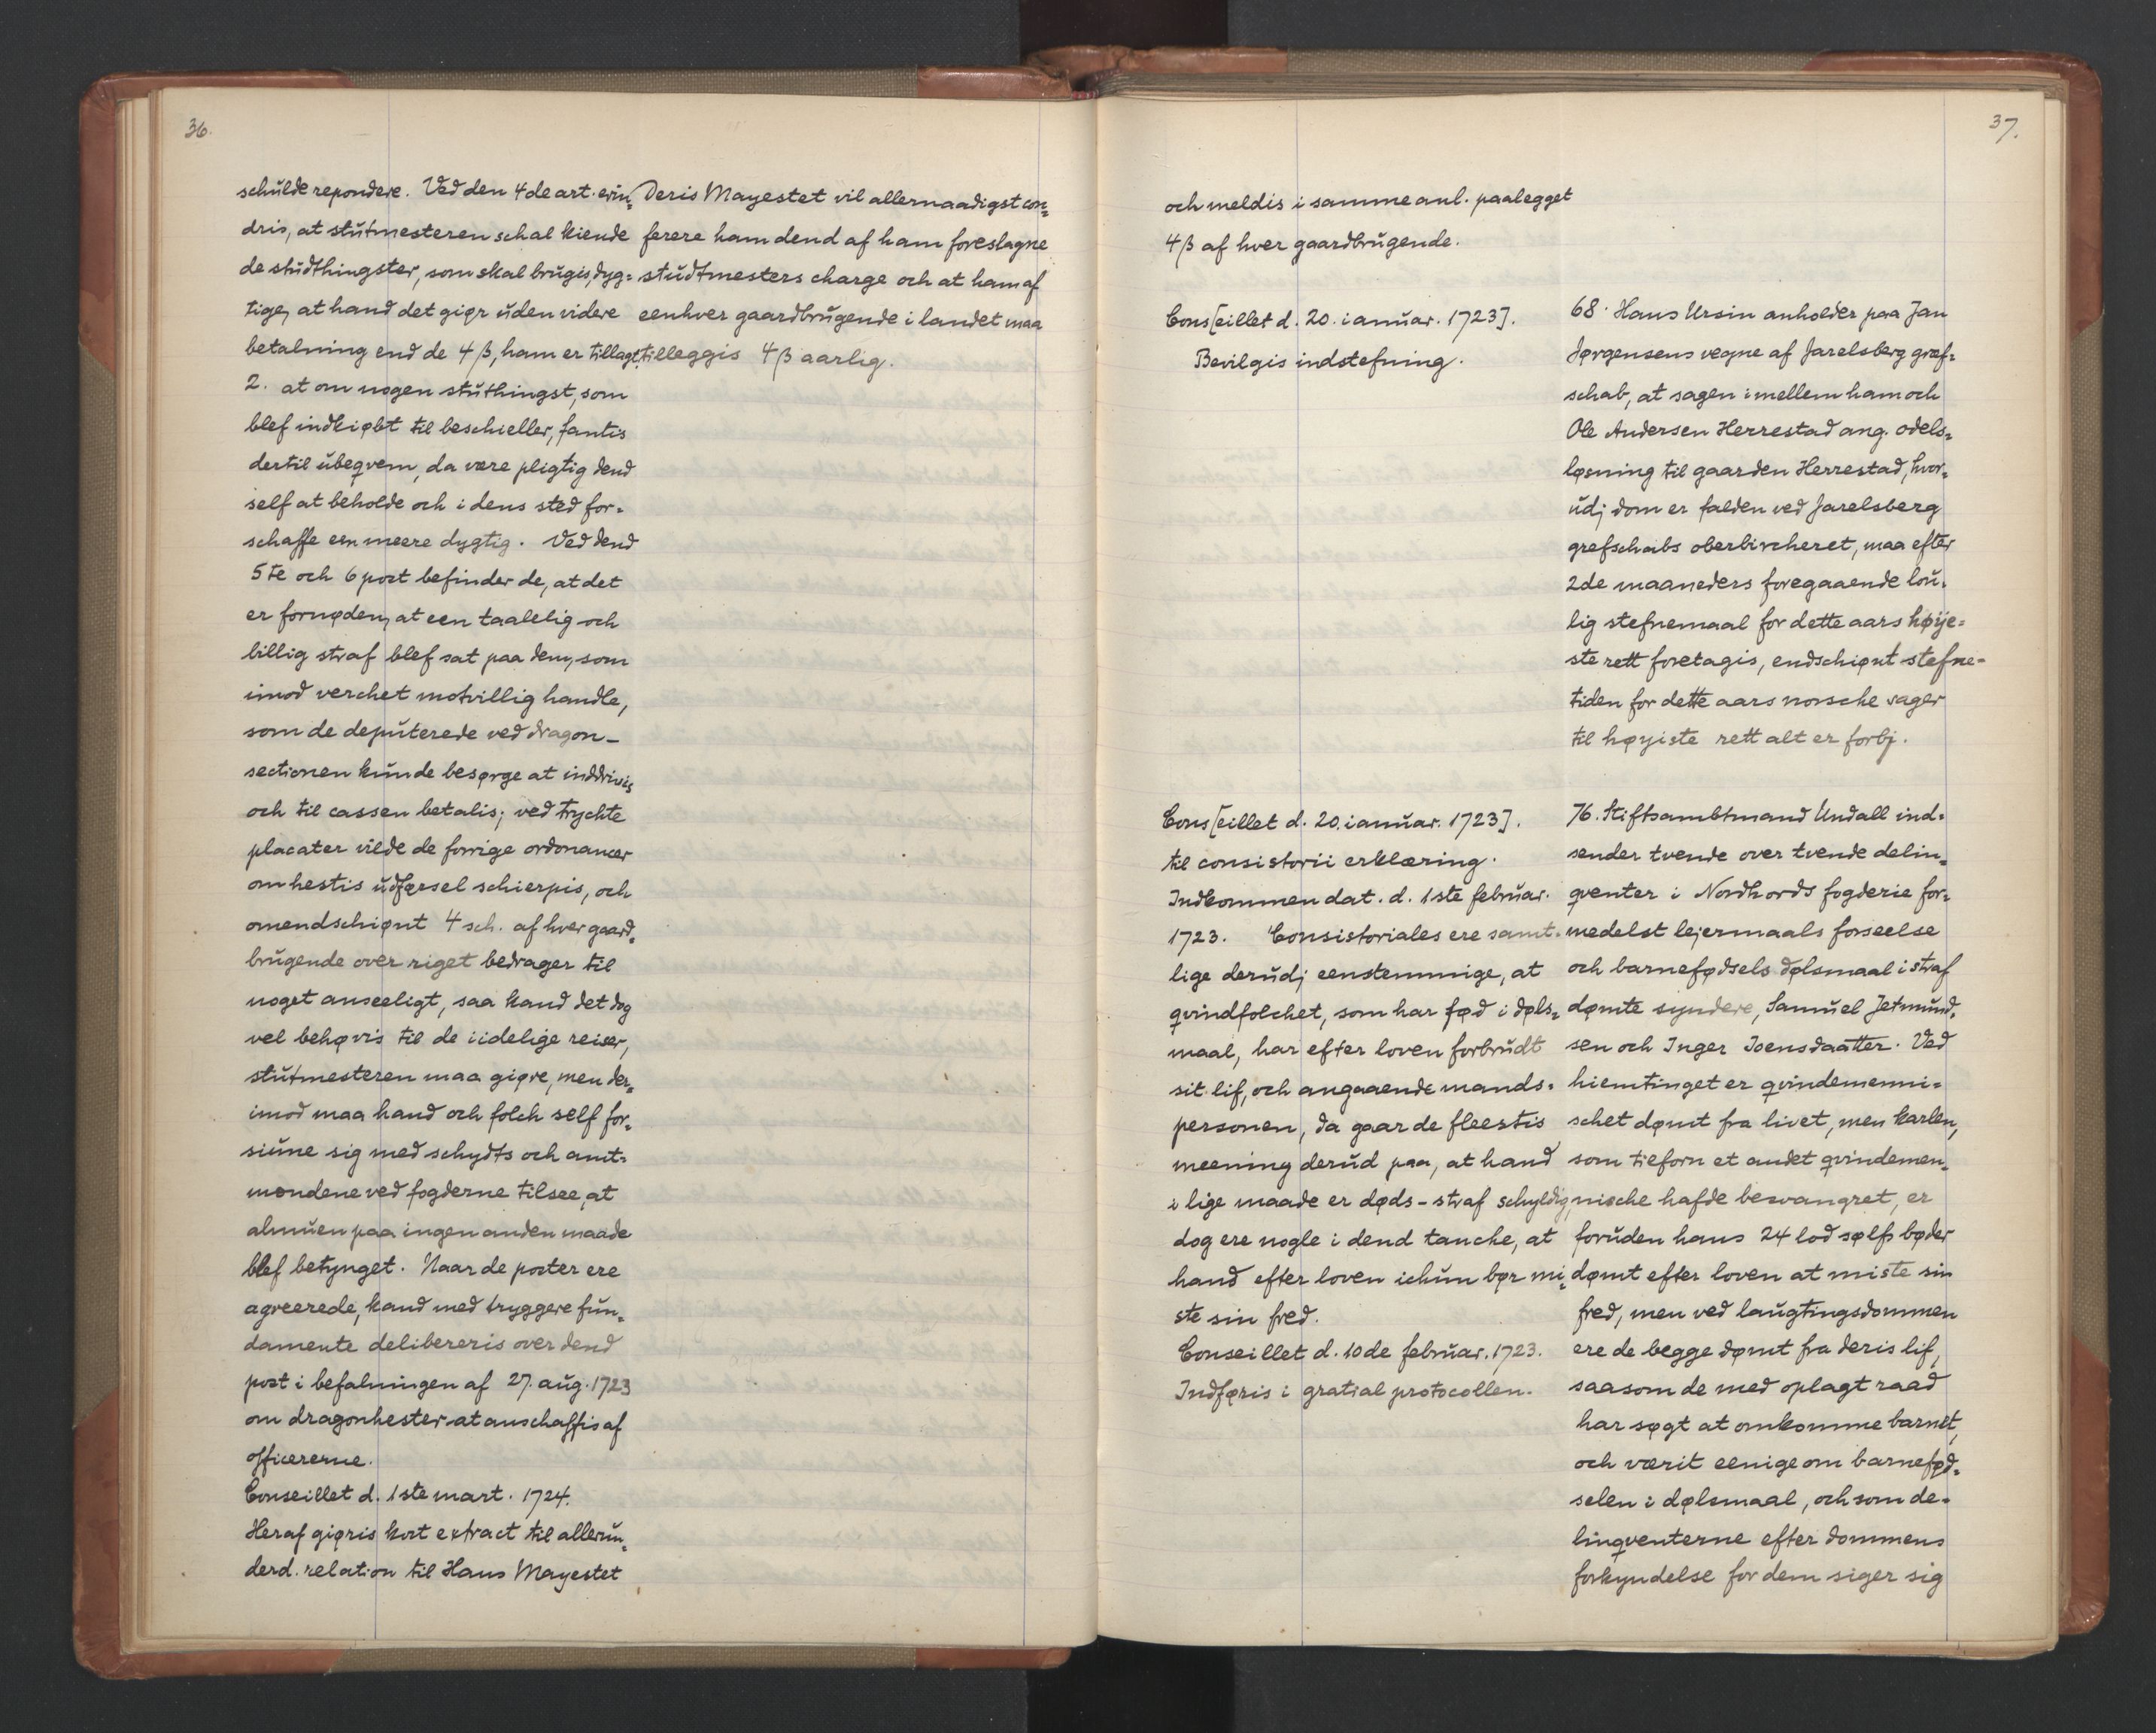 36.
schulde repondere. Ved den 4de art. erin=
dris, at stutmesteren schal kiende
de studthingster, som skal brugis, dyg=
tige, at hand det giør uden videre
betalning end de 4 β, ham er tillagt,
2. at om nogen stuthingst, som
blef indkiøbt til beschieller, fantis
dertil ubeqvem, da være pligtig dend
self at beholde och i dens sted for=
schaffe een meere dygtig. Ved dend
5te och 6 post befinder de, at det
er fornøden, at een taalelig och
billig straf blef sat paa dem, som
imod verchet motvillig handle,
som de deputerede ved dragon-
sectionen kunde besørge at inddrivis
och til cassen betalis; ved trychte
placater vilde de forrige ordonancer
om hestis udførsel schierpis, och
omendschiønt 4 sch. af hver gaard=
brugende over riget bedrager til
noget anseeligt, saa kand det dog
vel behøvis til de iidelige reiser,
stutmesteren maa giøre, men der=
imod maa hand och folch self for=
siune sig med schydts och amt=
mændene ved fogderne tilsee, at
almuen paa ingen anden maade
blef betynget. Naar de poster ere
agreerede, kand med tryggere fun=
damente delibereris over dend
post i befalningen af 27. aug. 1723
om dragonhester at anschaffis af
officererne.
Conseillet d. 1ste mart. 1724.
Heraf giøris kort extract til allerun=
derd. relation til Hans Mayestet
Deris Mayestet vil allernaadigst con=
ferere ham dend af ham foreslagne
studtmesters charge och at ham af
eenhver gaardbrugende i landet maa
tilleggis 4 β aarlig.
37.
och meldis i samme anl. paalegget
4 β af hver gaardbrugende.
Cons[eillet d. 20. ianuar. 1723].
Bevilgis indstefning.
68. Hans Ursin anholder paa Jan
Jørgensens vegne af Jarelsberg græf=
schab, at sagen imellem ham och
Ole Andersen Herrestad ang. odels=
løsning til gaarden Herrestad, hvor=
udj dom er falden ved Jarelsberg
grefschabs oberbircheret, maa efter
2de maaneders foregaaende lou=
lig stefnemaal for dette aars høije=
ste rett foretagis, endschiønt stefne=
tiden for dette aars norsche sager
til høyiste rett alt er forbj.
Cons[eillet d. 20. ianuar. 1723].
til consistorii erklæring.
Indkommen dat. d. 1ste februar.
1723. Consistoriales ere samt=
lige derudj eenstemmige, at
qvindfolchet, som har fød i døls=
maal, har efter loven forbrudt
sit lif, och angaaende mands=
personen, da gaar de fleestis
meening derud paa, at hand
i lige maade er døds-straf schyldig,
dog ere nogle i dend tanche, at
hand efter loven ichun bør mi=
ste sin fred.
Conseillet d. 10de februar. 1723.
Indføris i gratial protocollen.
76. Stiftsambtmand Undall ind=
sender tvende over tvende delin=
qventer i Nordhords fogderie for=
medelst lejermaals forseelse
och barnefødsels dølsmaal i straf
dømte syndere, Samuel Jetmund=
sen och Inger Joensdaatter. Ved
hiemtinget er qvindemenni=
schet dømt fra livet, men karlen,
som tilforn et andet qvindemen=
nische hafde besvangret, er
foruden hans 24 lod sølfs bøder
dømt efter loven at miste sin
fred, men ved laugtingsdommen
ere de begge dømt fra deris lif,
saasom de med oplagt raad
har søgt at omkomme barnet,
och værit eenige om barnefød=
selen i dølsmaal, och som de=
linqventerne efter dommens
forkyndelse for dem siger sig